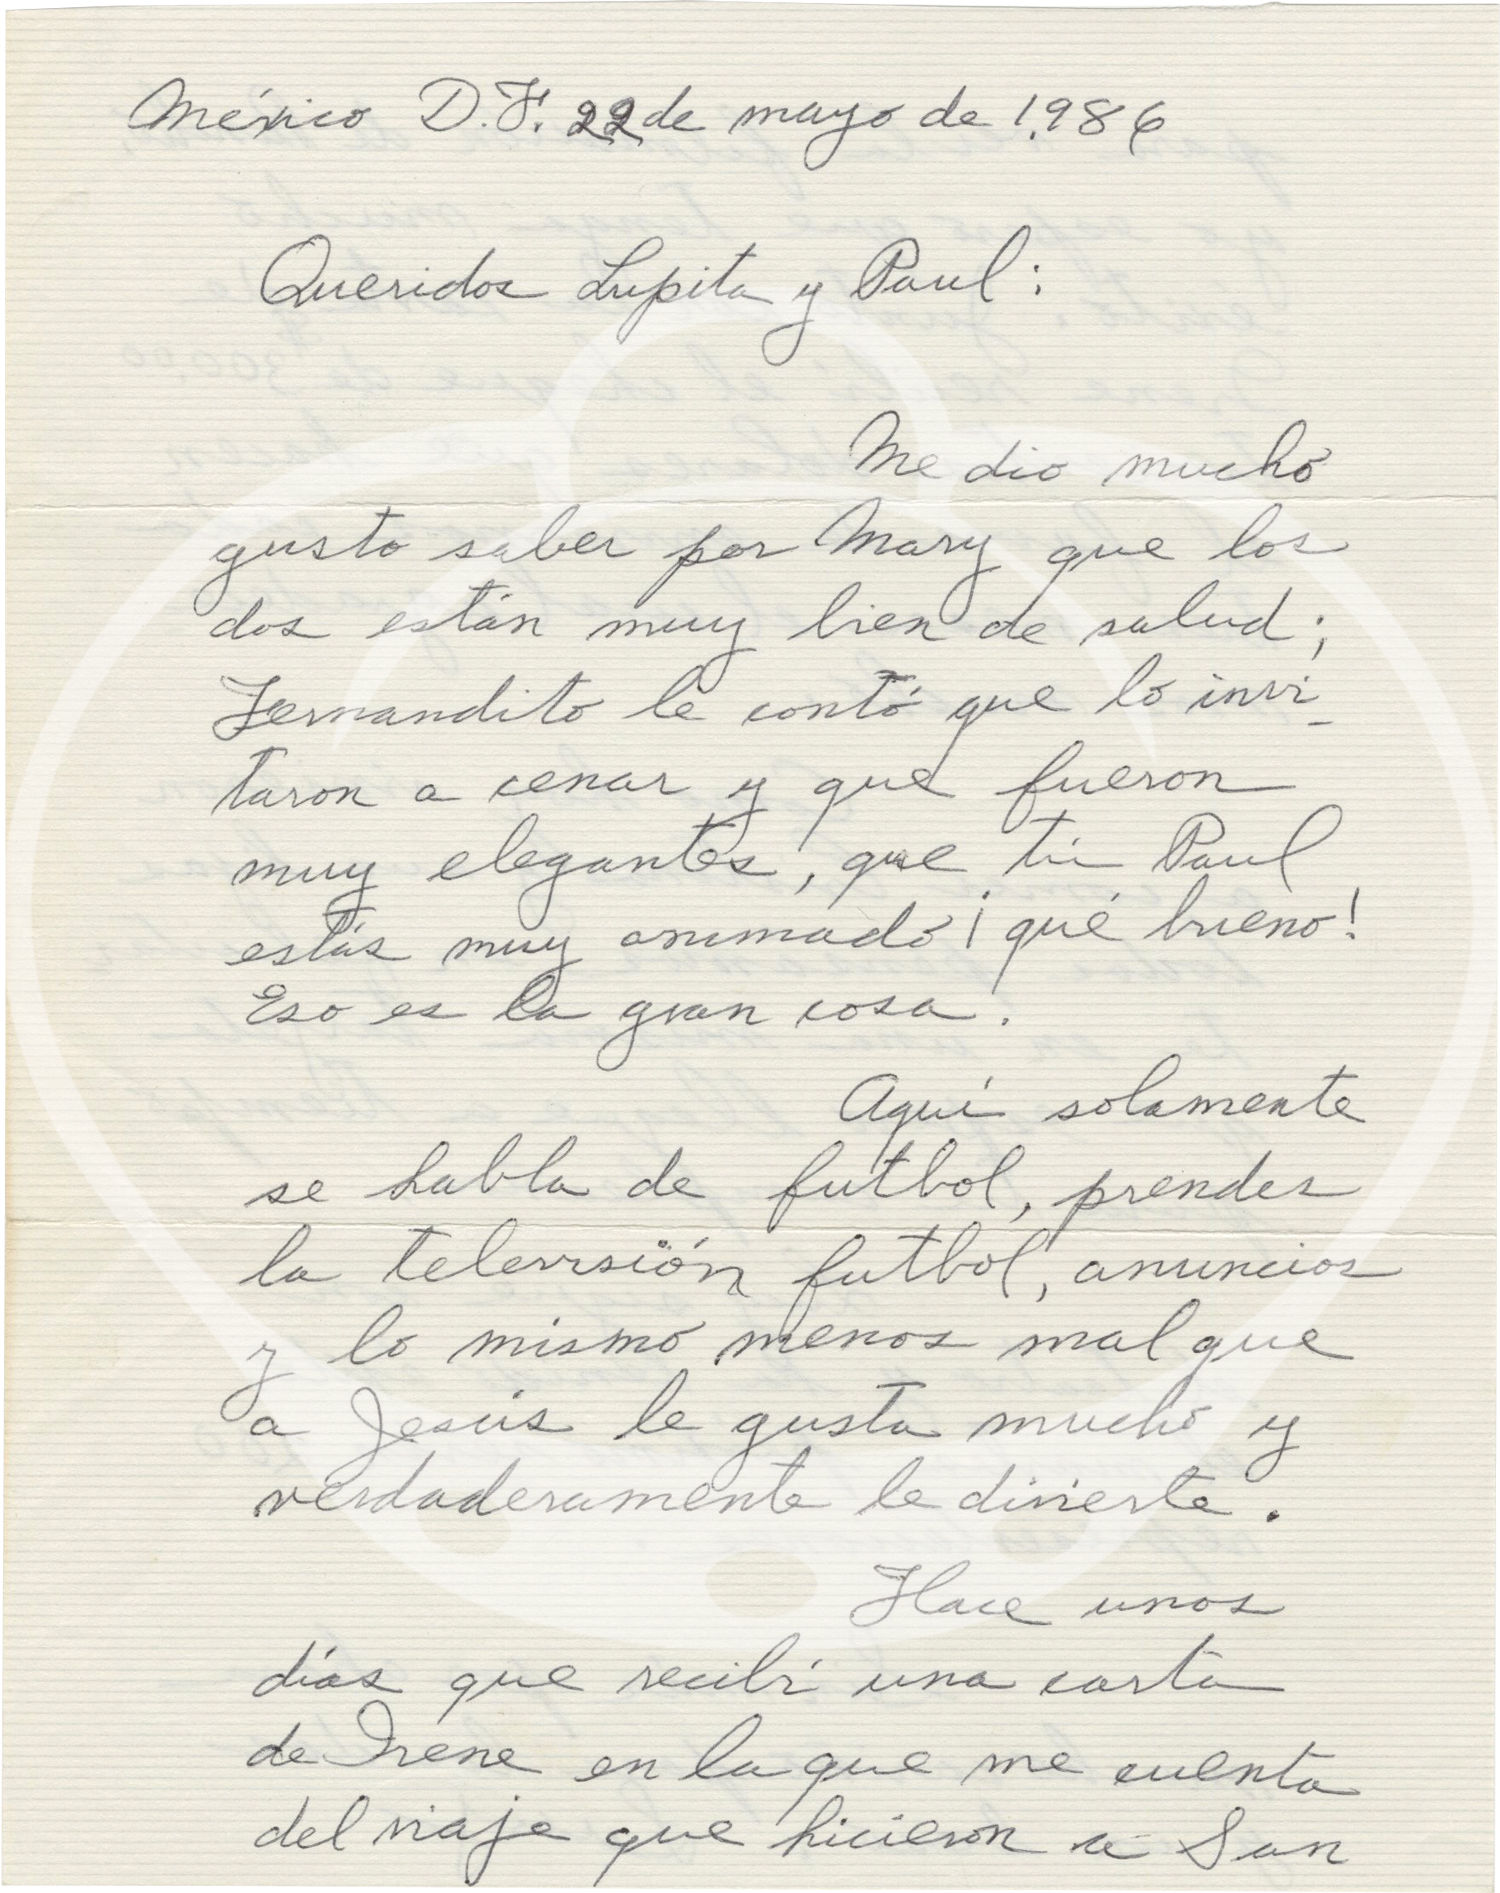 México D.F. 22 de mayo de 1,986
Queridos Lupita y Paul:
Me dio mucho
gusto saber por Mary que los
dos están muy bien de salud;
Fernandito le contó que lo invi-
taron a cenar y que fueron
muy elegantes, que tú Paul
estás muy animado ¡qué bueno!
Eso es la gran cosa.
Aquí solamente
se habla de futbol, prendes
la televisión futbol, anuncios
y lo mismo menos mal que
a Jesús le gusta mucho y
verdaderamente le divierte.
Hace unos
días que recibí una carta
de Irene en la que me cuenta
del viaje que hicieron a San